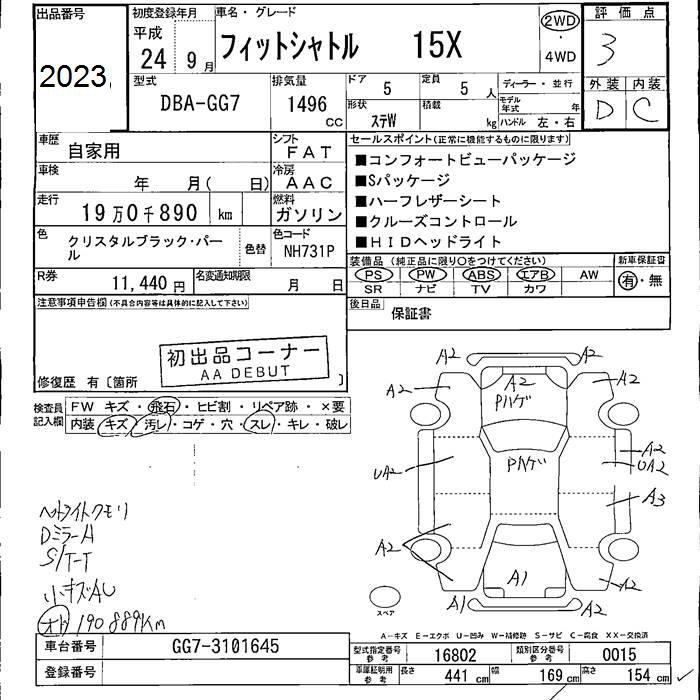 出品番号
2023
初度登録年月
平成
24年 9月
車名・グレード
フィットシャトル 15X
2WD
・
4WD
評価点
3
外装 内装
D C
型式
DBA-GG7
排気量
1496 CC
ドア
5
定員
5 人
形状
ステW
積載
kg
ディーラー・並行
モデル年式 年
ハンドル 左・右
車歴
自家用
シフト
FAT
車検
年 月( 日)
冷房
AAC
走行
19万0千890 km
燃料
ガソリン
色
クリスタルブラック・パール
色替
色コード
NH731P
R券
11,440円
名変通知期限
月 日
セールスポイント(正常に機能するものに限ります)
■コンフォートビューパッケージ
■Sパッケージ
■ハーフレザーシート
■クルーズコントロール
■HIDヘッドライト
装備品 (純正品に限り○をつけてください)
PS PW ABS エアB AW
SR ナビ TV カワ
新車保証書
有・無
後日品
保証書
注意事項申告欄(不具合内容等は具体的に記入して下さい)
初出品コーナー
AA DEBUT
修復歴 有〔箇所 〕
検査員記入欄
FW キズ・飛石・ヒビ割・リペア跡・×要
内装 キズ・汚レ・コゲ・穴・スレ・キレ・破レ
ヘットライトクモリ
DミラーA
S/T-T
小キズAU
オド 190889Km
A2 A2
A2 A2 A2
Pハゲ
Pハゲ
UA2
A2
UA2
A3
A2
A1
A2
A1 A2
スペア
A-キズ E-エクボ U-凹み W-補修跡 S-サビ C-腐食 XX-交換済
車台番号
GG7-3101645
登録番号
型式指定番号
参考
16802
類別区分番号
参考
0015
車庫証明用
参考
長さ
441 cm
幅
169 cm
高さ
154 cm